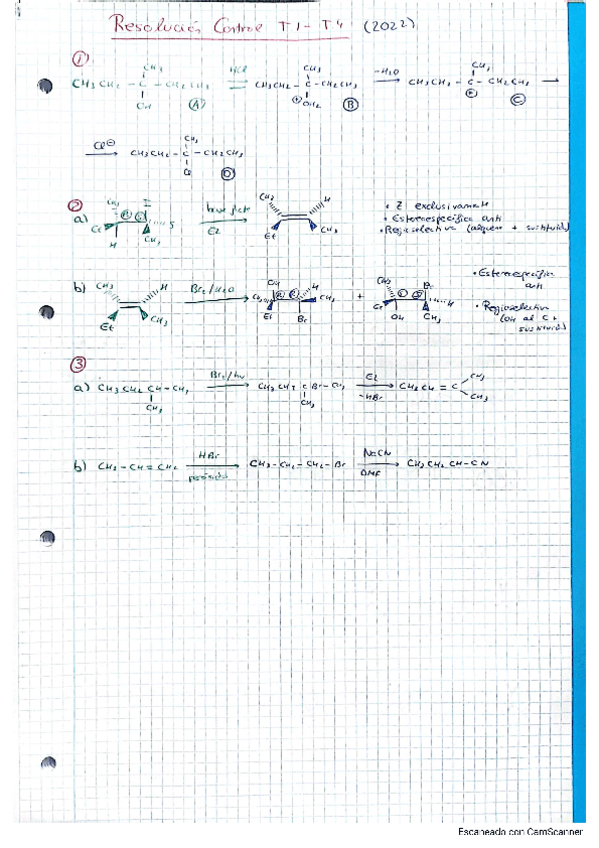 Resolución Control T1 - T4 (2022)
①
CH3CH2 - C - CH2CH3
CH3
OH
Ⓐ
HCl
CH3CH2 - C - CH2CH3
CH3
⊕OH2
Ⓑ
-H2O
CH3CH2 - C - CH2CH3
CH3
⊕
Ⓒ
Cl⊖
CH3CH2 - C - CH2CH3
CH3
Cl
Ⓓ
②
a)
I
H
CH3
E2
CH3
H
Et
CH3
• Z exclusivamente
• Estereoespecífica anti
• Regioselectiva (alqueno + sustituido)
b)
CH3
H
Et
CH3
Br2/H2O
OH
H
CH3
Et
Br
+
Br
H
OH
CH3
• Estereoespecífica
anti
• Regioselectiva
(OH al C +
sustituido)
③
a) CH3CH2CH-CH3
CH3
Br2/hν
CH3CH2CBr-CH3
CH3
E2
-HBr
CH3CH = C
CH3
CH3
b) CH3-CH=CH2
HBr
peróxido
CH3-CH2-CH2-Br
NaCN
DMF
CH3CH2CH-CN
Escaneado con CamScanner